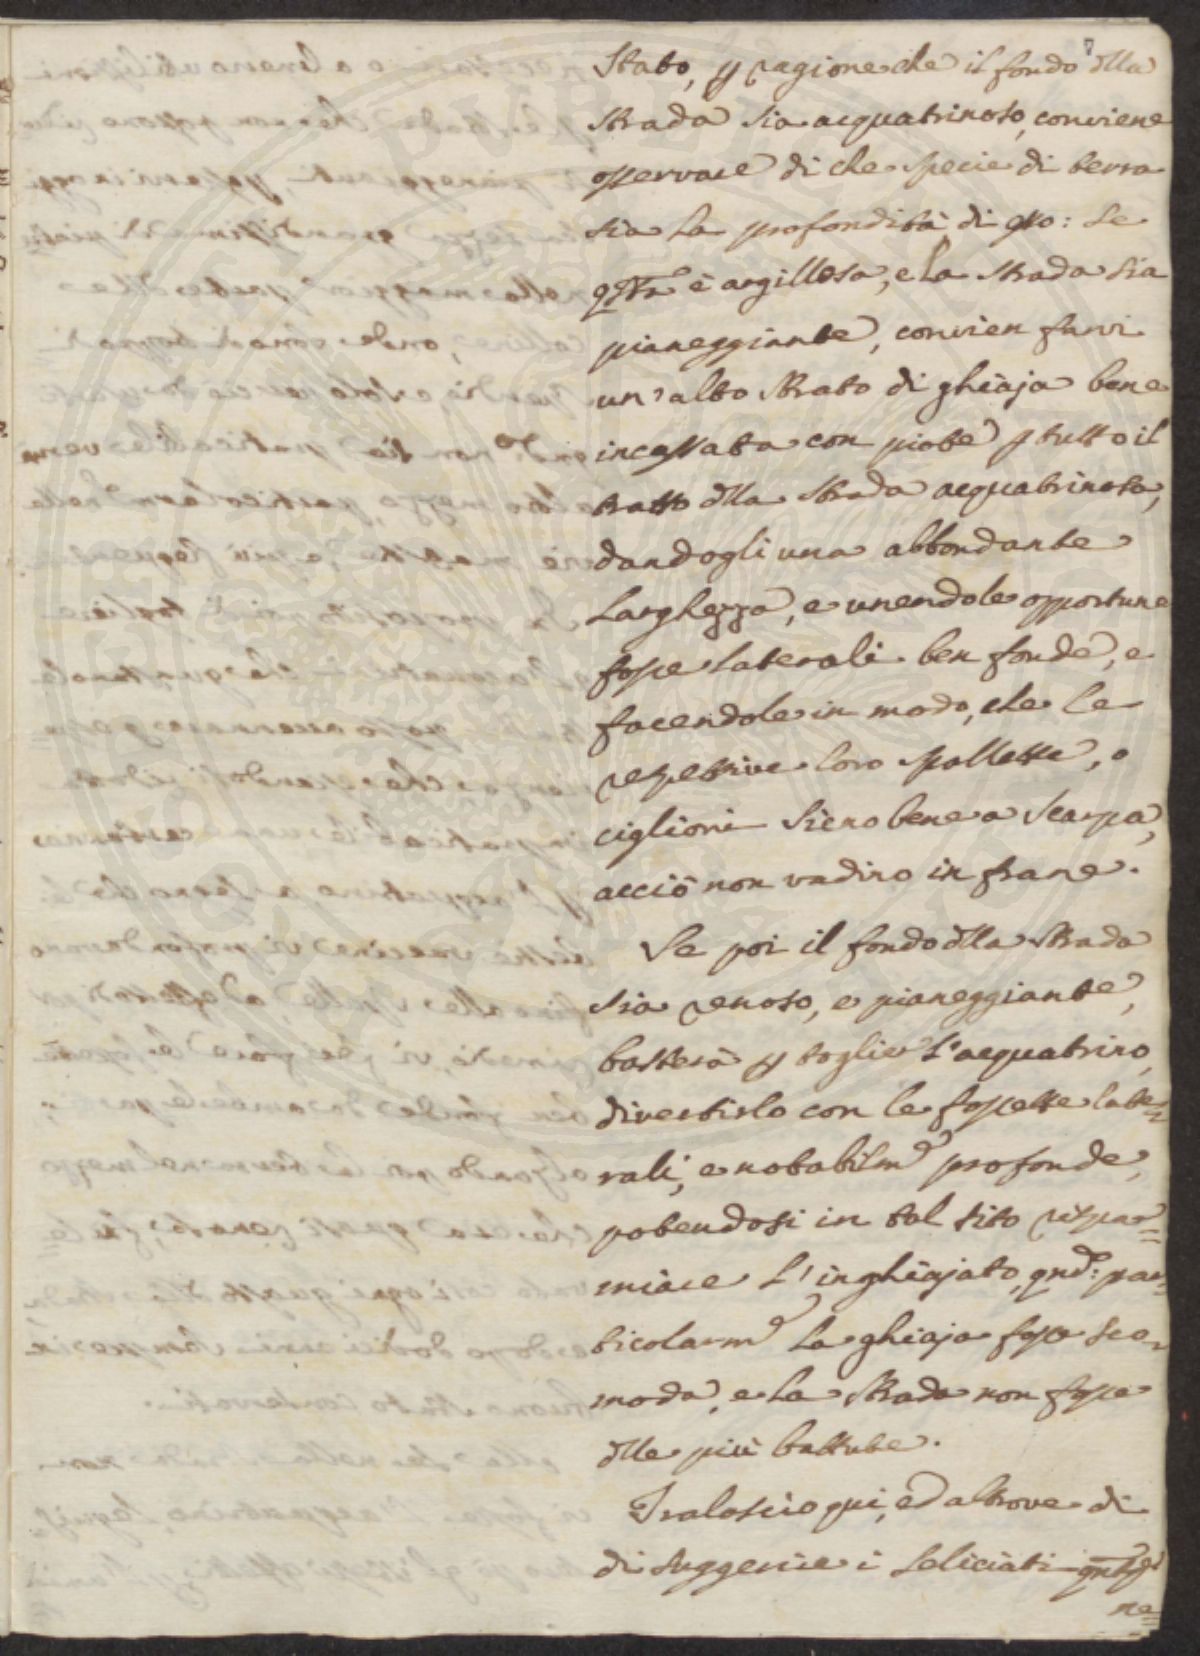 Stato, p ragione che il fondo dlla
Strada sia acquatrinoso, conviene
osservare di che specie di terra
sia la profondità di esso: Se
qsta è argillosa, e la strada sia
pianeggiante, convien farvi
un'alto strato di ghiaja bene
incassata con piote p tutto il
tratto dlla strada acquatrinosa,
dandogli una abbondante
Larghezza, e unendole opportune
fosse laterali ben fonde, e
facendole in modo, che le
respettive loro spallette, o
ciglioni sieno bene a scarpa,
acciò non vadino in frane.
Se poi il fondo dlla strada
sia renoso, e pianeggiante,
basterà p toglier l'acquatrino,
divertirlo con le fossette late=
rali, e notabilme profonde,
potendosi in tal sito rispar=
miare l'inghiajato, qndo: par=
ticolarme la ghiaja fosse sco=
moda, e la Strada non fosse
dlle più battute.
Tralascio qui, ed altrove di
di suggerire i Seliciati
ne=